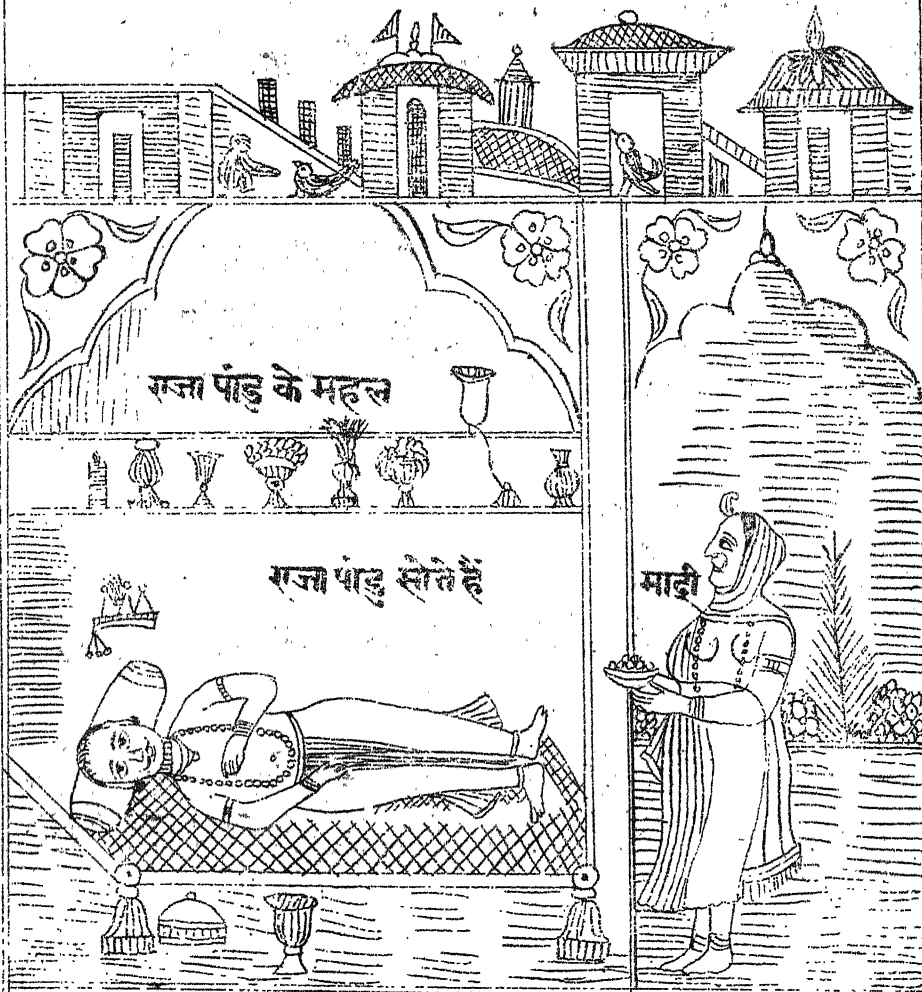 राजा पांडु के महल
राजा पांडु सोते हैं
माद्री